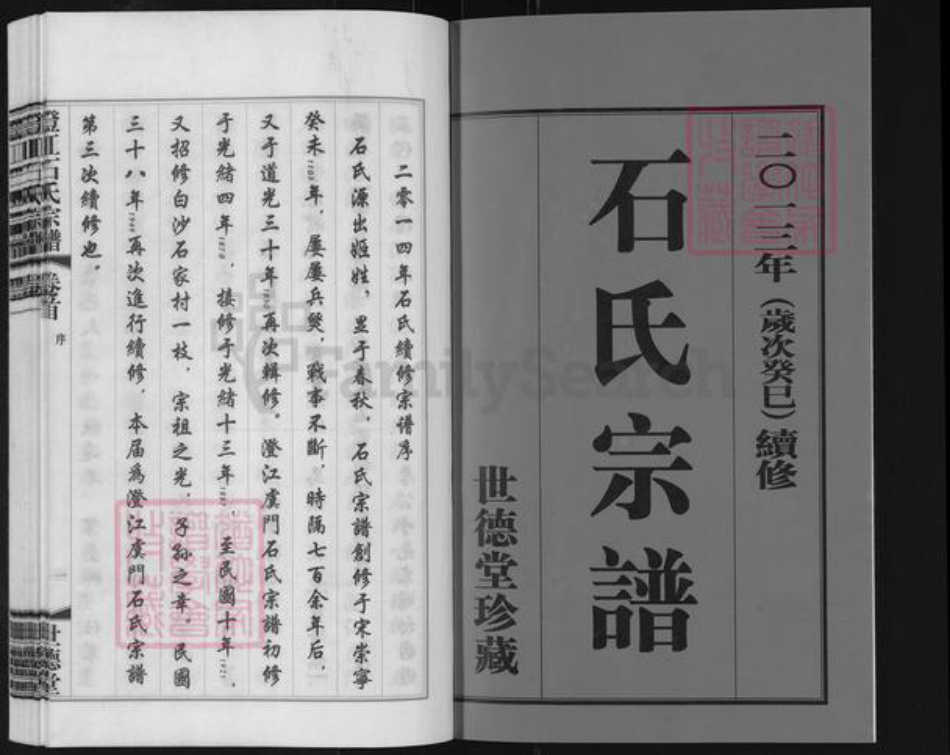 二〇一三年（歲次癸巳）續修
石氏宗譜
世德堂珍藏
二零一四年石氏續修宗譜序
石氏源出姬姓，显于春秋，石氏宗譜創修于宋崇寧
癸未1103年，屢屢兵燹，戰事不斷，時隔七百余年后，
又于道光三十年1850再次輯修。澄江虞門石氏宗譜初修
于光緒四年1878，接修于光緒十三年1887，至民國十年1921，
又招修白沙石家村一枝，宗祖之光，子孫之幸。民國
三十八年1949再次進行續修，本届為澄江虞門石氏宗譜
第三次續修也。
澄江石氏宗譜
卷首
序
一
世德堂
FamilySearch